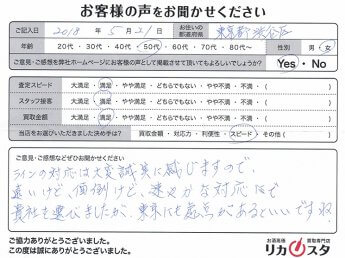 お客様の声をお聞かせください
ご記入日 2018 年 5 月 21 日 お住いの都道府県 東京都渋谷区
年齢 20代・30代・40代・50代・60代・70代・80代 性別 男・女
ご意見・ご感想を弊社ホームページにお客様の声として掲載させて頂いてもよろしいでしょうか? Yes・No
査定スピード 大満足・満足・やや満足・どちらでもない・やや不満・不満・( )
スタッフ接客 大満足・満足・やや満足・どちらでもない・やや不満・不満・( )
買取金額 大満足・満足・やや満足・どちらでもない・やや不満・不満・( )
当店をお選びいただきました決め手は? 買取金額・対応力・利便性・スピード・その他( )
ご意見・ご感想などぜひお聞かせください
ラインの対応は大変誠実に感じますので、
遠いけど、面倒けど、速やかな対応なので
貴社を選びましたが、東京にも拠点があるといいですね!
ご協力ありがとうございました。
この度は誠にありがとうございました。
お酒高価買取専門店
リカスタ